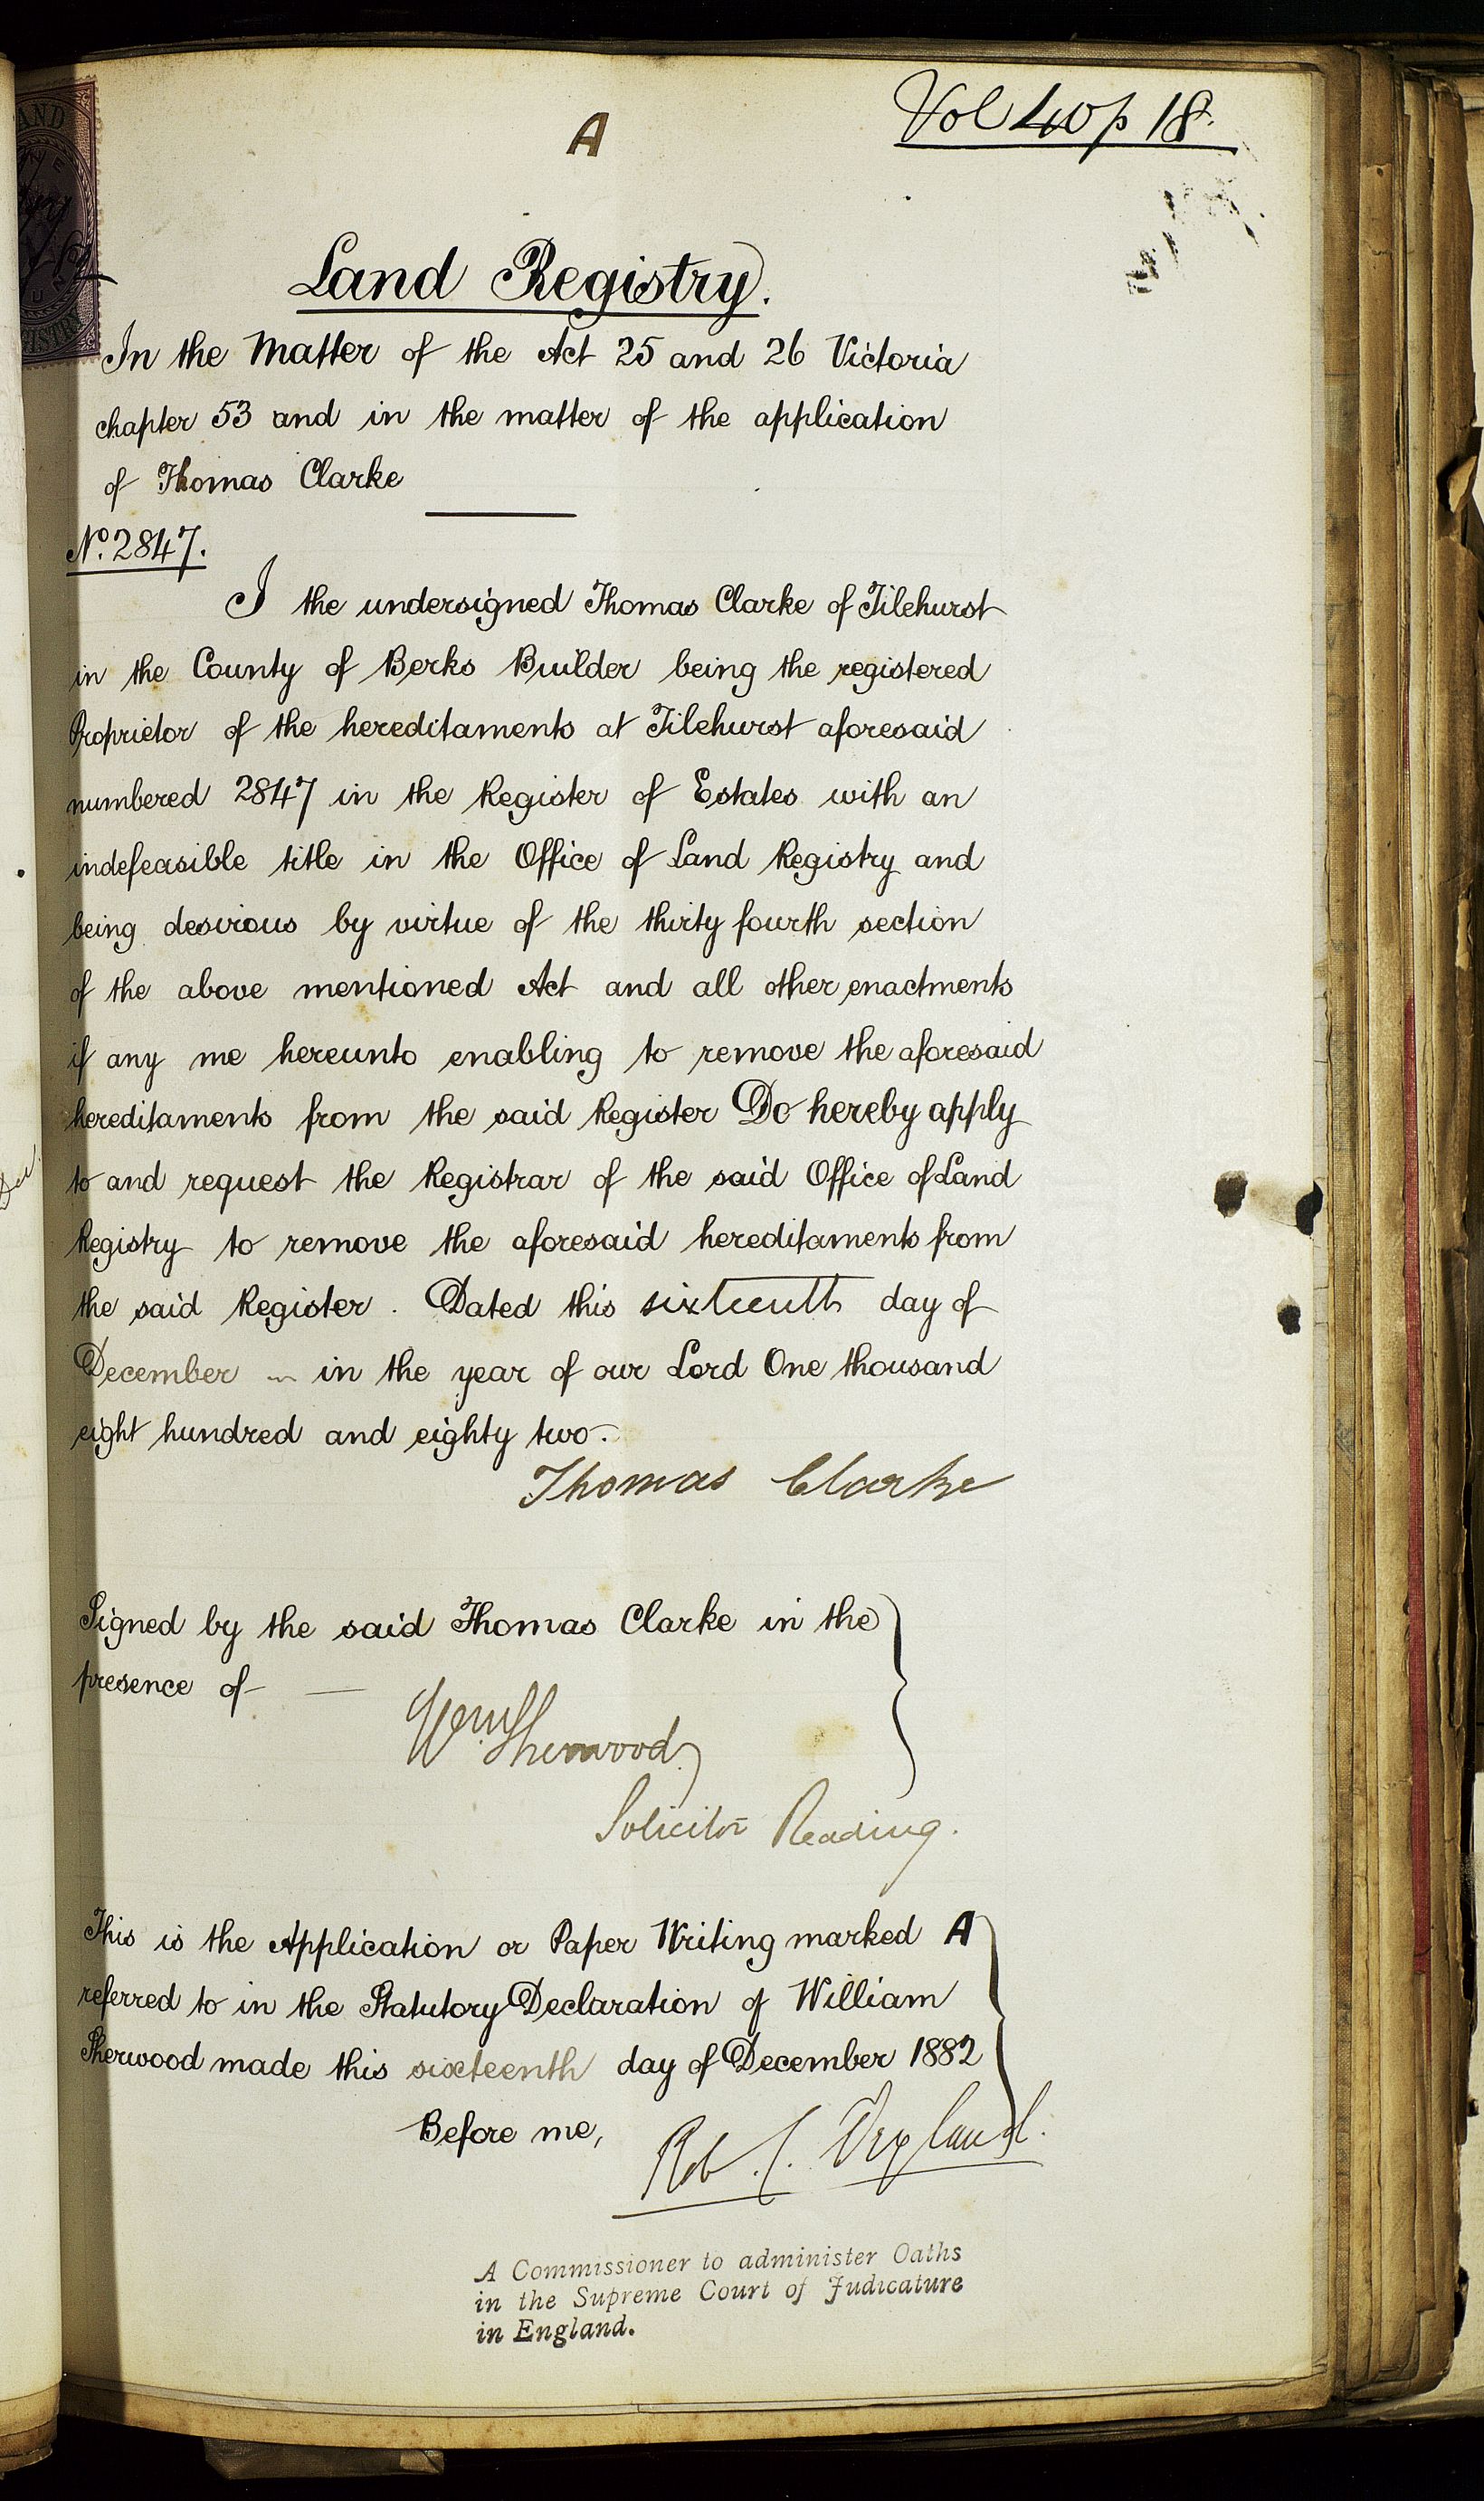 Vol 40 p 18.
A
Land Registry.
In the Matter of the Act 25 and 26 Victoria
chapter 53 and in the matter of the application
of Thomas Clarke
No. 2847.
I the undersigned Thomas Clarke of Tilehurst
in the County of Berks Builder being the registered
Proprietor of the hereditaments at Tilehurst aforesaid
numbered 2847 in the Register of Estates with an
indefeasible title in the Office of Land Registry and
being desirous by virtue of the thirty fourth section
of the above mentioned Act and all other enactments
if any me hereunto enabling to remove the aforesaid
hereditaments from the said Register Do hereby apply
to and request the Registrar of the said Office of Land
Registry to remove the aforesaid hereditaments from
the said Register. Dated this sixteenth day of
December in the year of our Lord One thousand
eight hundred and eighty two.
Thomas Clarke
Signed by the said Thomas Clarke in the
presence of
Wm. Sherwood
Solicitor Reading.
This is the Application or Paper Writing marked A
referred to in the Statutory Declaration of William
Sherwood made this sixteenth day of December 1882
Before me,
Rob. C.
A Commissioner to administer Oaths
in the Supreme Court of Judicature
in England.